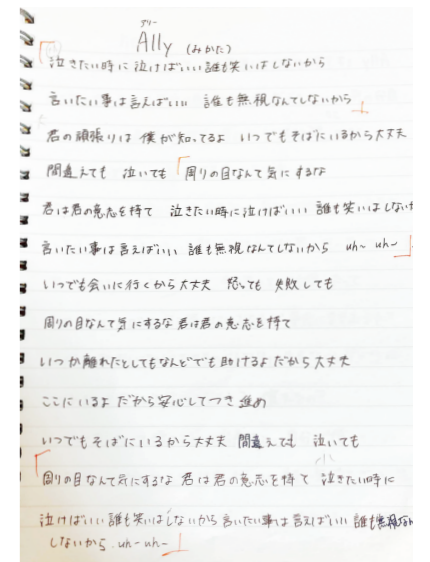 アリー
Ally (みかた)
「泣きたい時に泣けばいい誰も笑いはしないから
言いたい事は言えばいい 誰も無視なんてしないから」
君の頑張りは 僕が知ってるよ いつでもそばにいるから大丈夫
間違えても 泣いても 「周りの目なんて気にするな
君は君の意志を持て 泣きたい時に泣けばいい 誰も笑いはしない
言いたい事は言えばいい 誰も無視なんてしないから uh~ uh~」
いつでも会いに行くから大丈夫 怒っても 失敗しても
周りの目なんて気にするな 君は君の意志を持て
いつか離れたとしてもなんどでも助けるよ だから 大丈夫
ここにいるよ だから安心してつき進め
いつでもそばにいるから大丈夫 間違えても 泣いても
「周りの目なんて気にするな 君は君の意志を持て 泣きたい時に
泣けばいい 誰も笑いはしないから 言いたい事は言えばいい 誰も無視なん
しないから uh~ uh~」